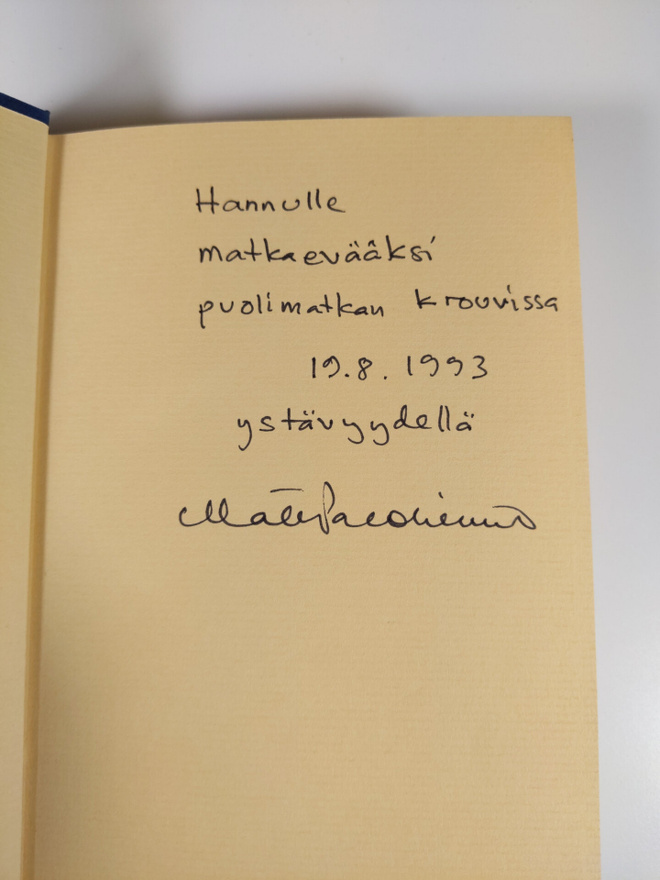 Hannulle
matkaevääksi
puolimatkan krouvissa
19.8.1993
ystävyydellä
Matti Paloheimo